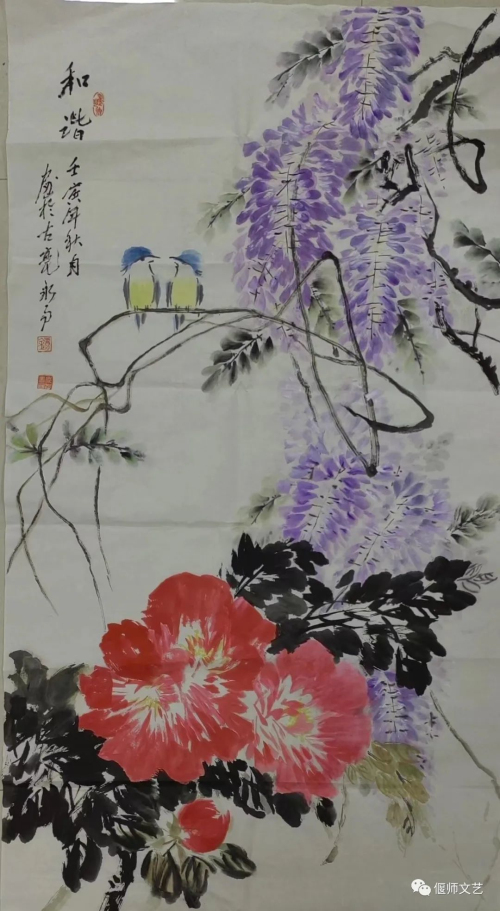 和谐
壬寅年秋月
于古亳永
偃师文艺